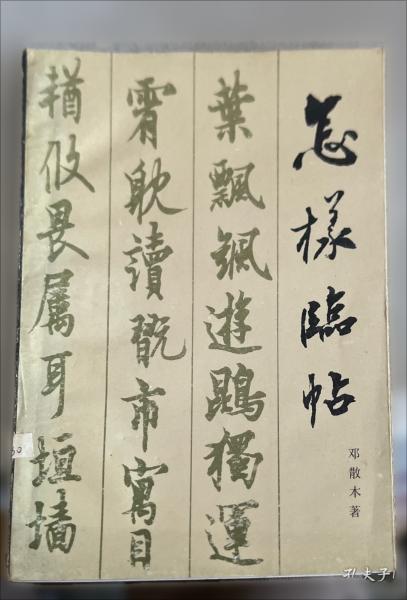 怎樣臨帖
邓散木著
葉飄颻遊鵾獨運
霄耽讀翫市寓目
輶攸畏屬耳垣墻
孔夫子